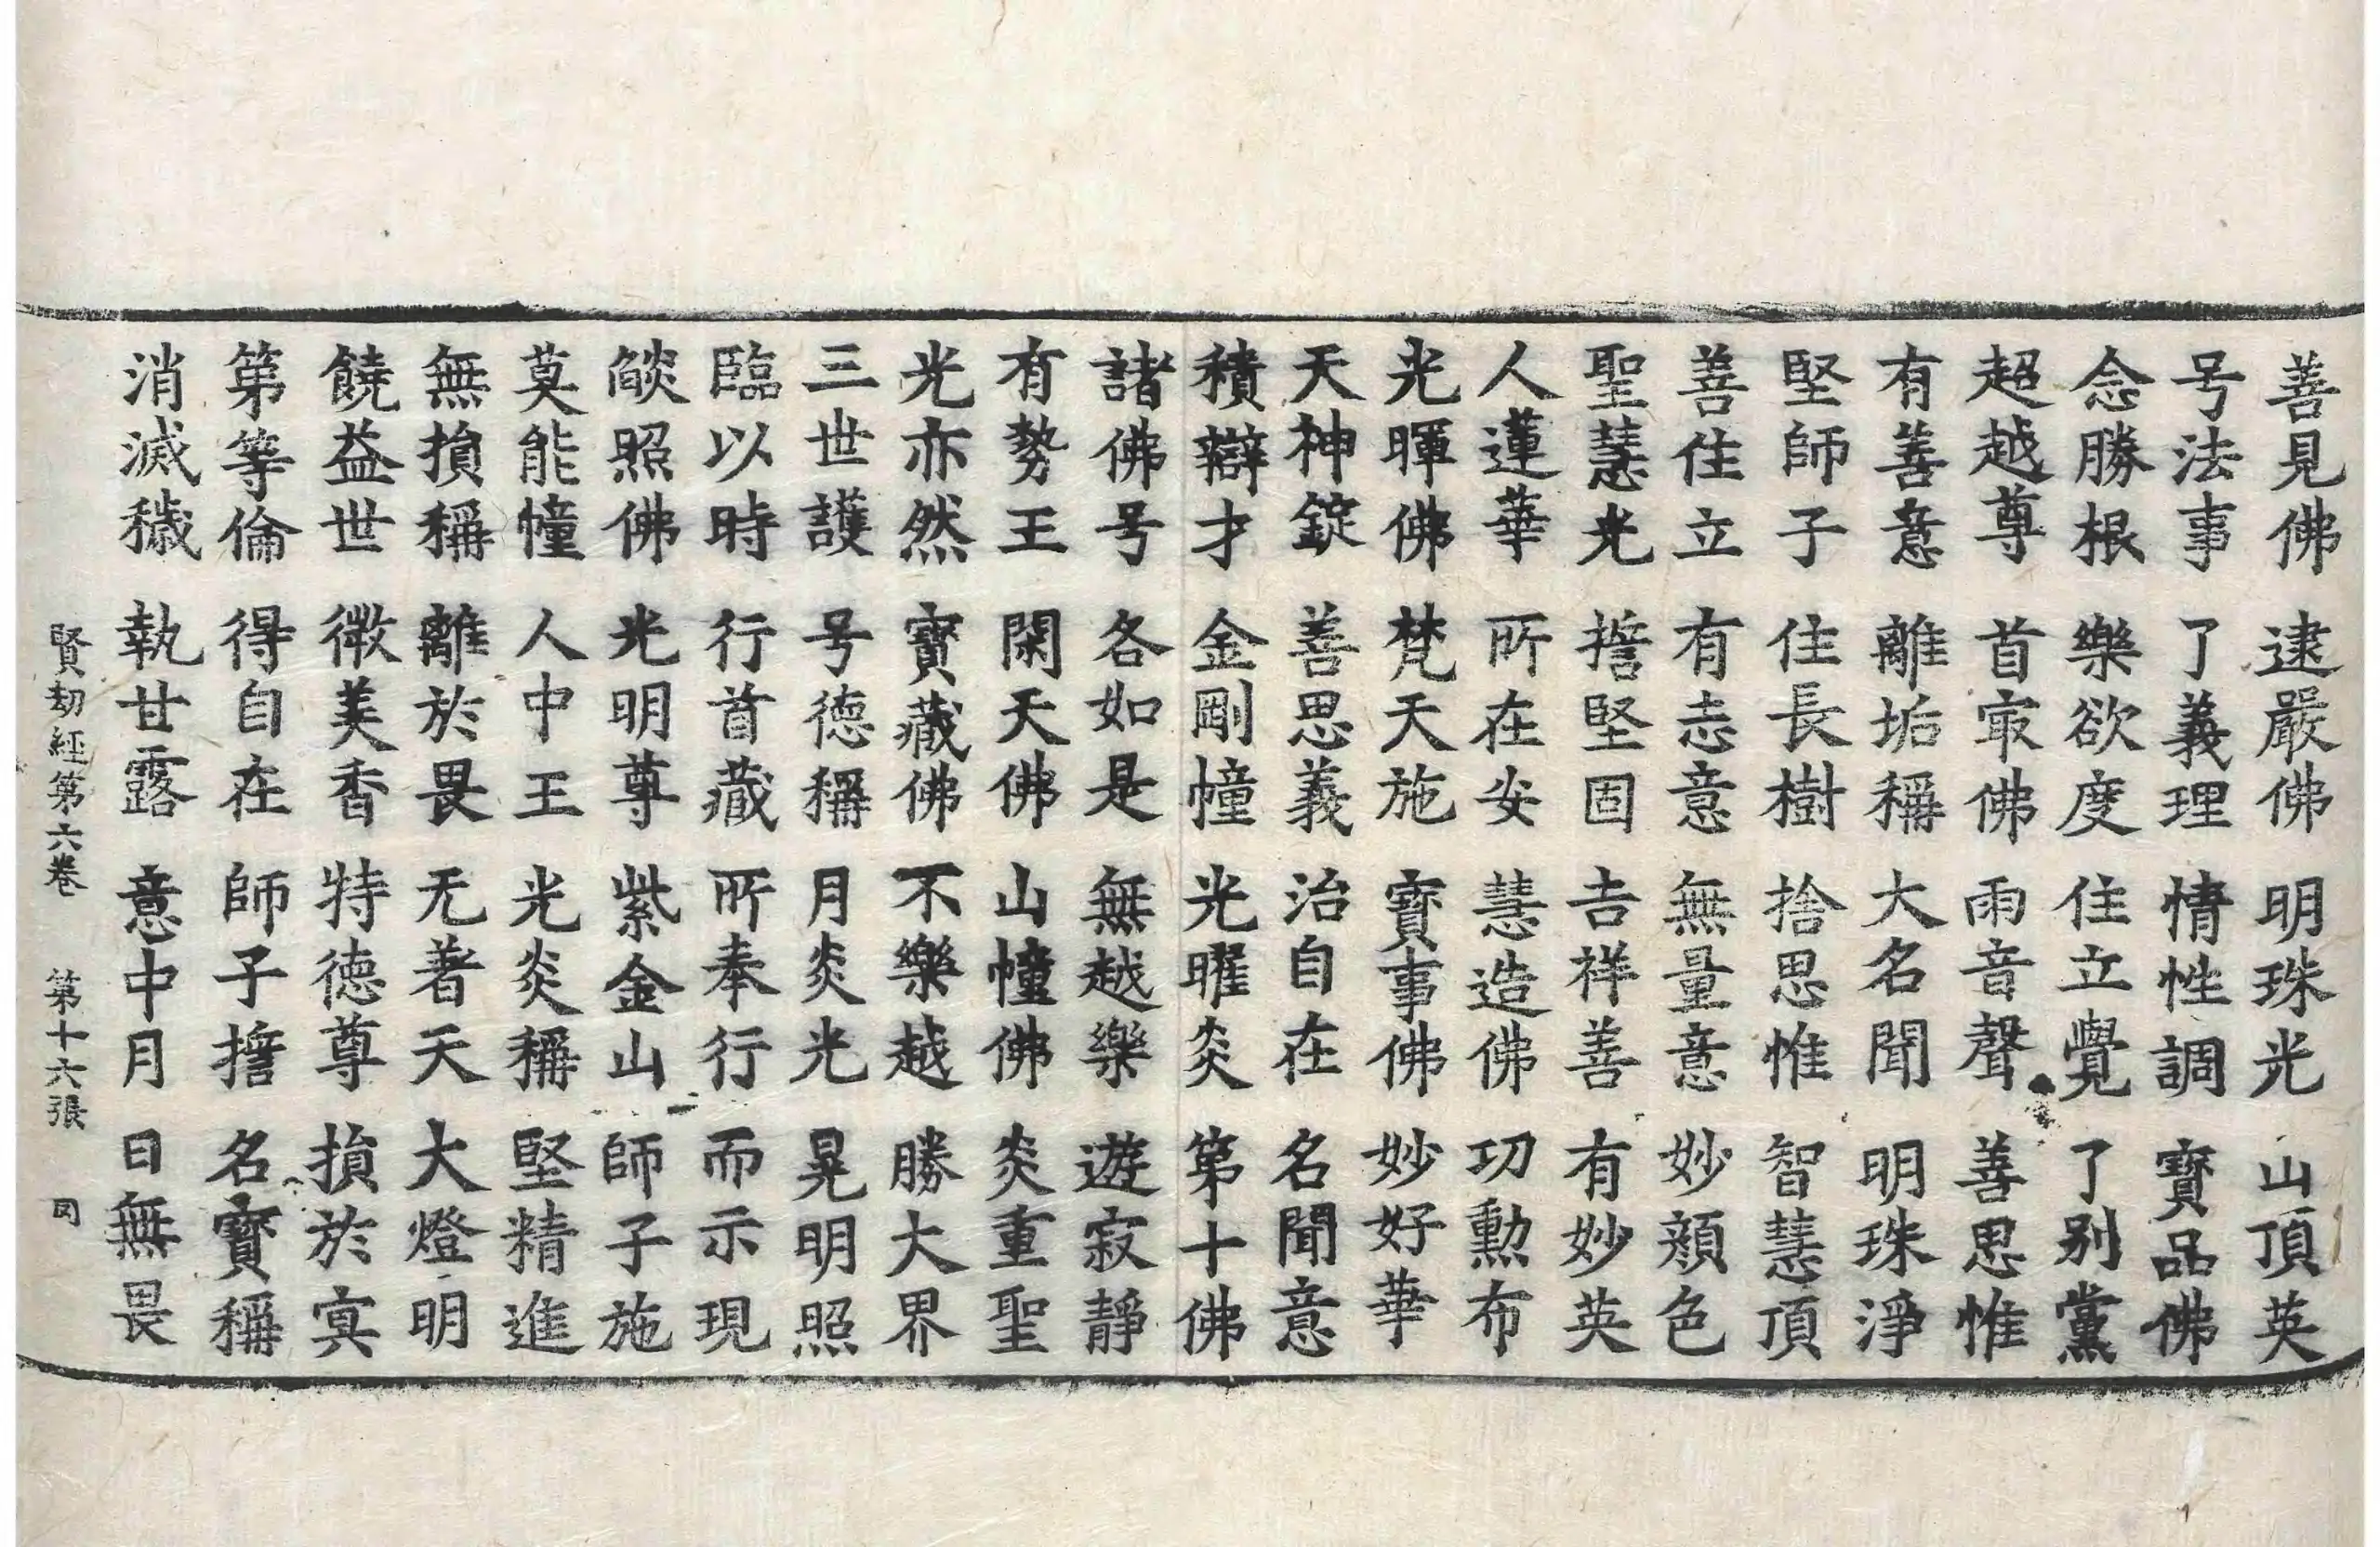 善見佛 逮嚴佛 明珠光 山頂英
号法事 了義理 情性調 寳品佛
念勝根 樂欲度 住立覺 了别黨
超越尊 首冣佛 雨音聲 善思惟
有善意 離垢稱 大名聞 明珠淨
堅師子 住長樹 捨思惟 智慧頂
善住立 有志意 無量意 妙顔色
聖慧光 擔堅固 吉祥善 有妙英
人蓮華 所在安 慧造佛 功勳布
光暉佛 梵天施 寳事佛 妙好華
天神錠 善思義 治自在 名聞意
積辯才 金剛幢 光曜炎 第十佛
諸佛号 各如是 無越樂 遊寂靜
有勢王 閑天佛 山幢佛 炎重聖
光亦然 寳藏佛 不樂越 勝大界
三世護 号德稱 月炎光 晃明照
臨以時 行首藏 所奉行 而示現
燄照佛 光明尊 紫金山 師子施
莫能幢 人中王 光炎稱 堅精進
無損稱 離於畏 无著天 大燈明
饒益世 微美香 特德尊 損於冥
第等倫 得自在 師子擔 名寳稱
消滅穢 執甘露 意中月 日無畏
賢劫經第六卷 第十六張 罔